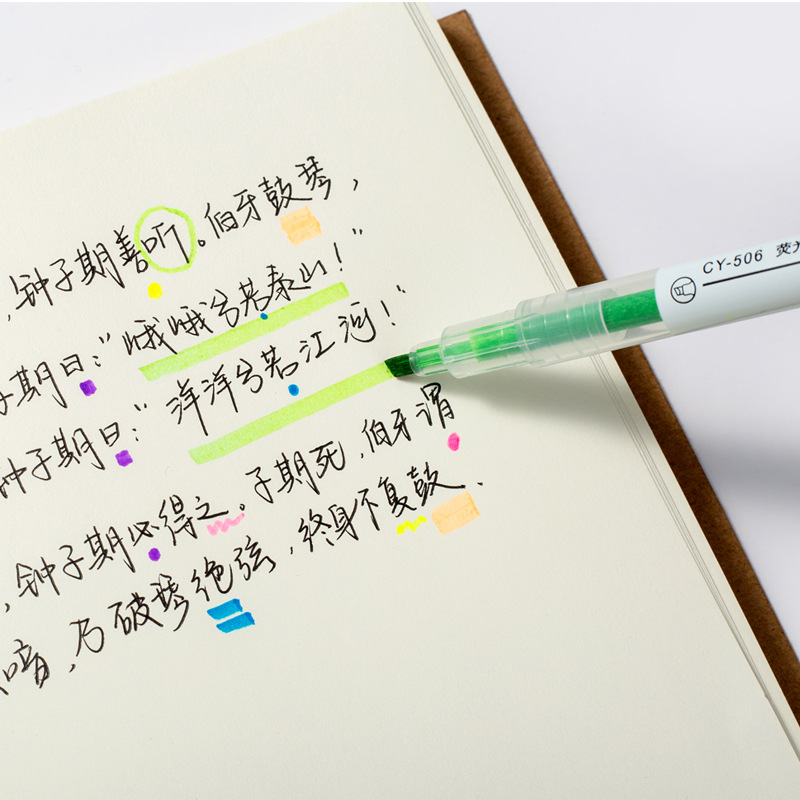 ,钟子期善听。伯牙鼓琴,
子期曰:"哦哦兮若泰山!"
钟子期曰:"洋洋兮若江河!"
,钟子期必得之。子期死,伯牙谓
音,乃破琴绝弦,终身不复鼓.
CY-506 荧光